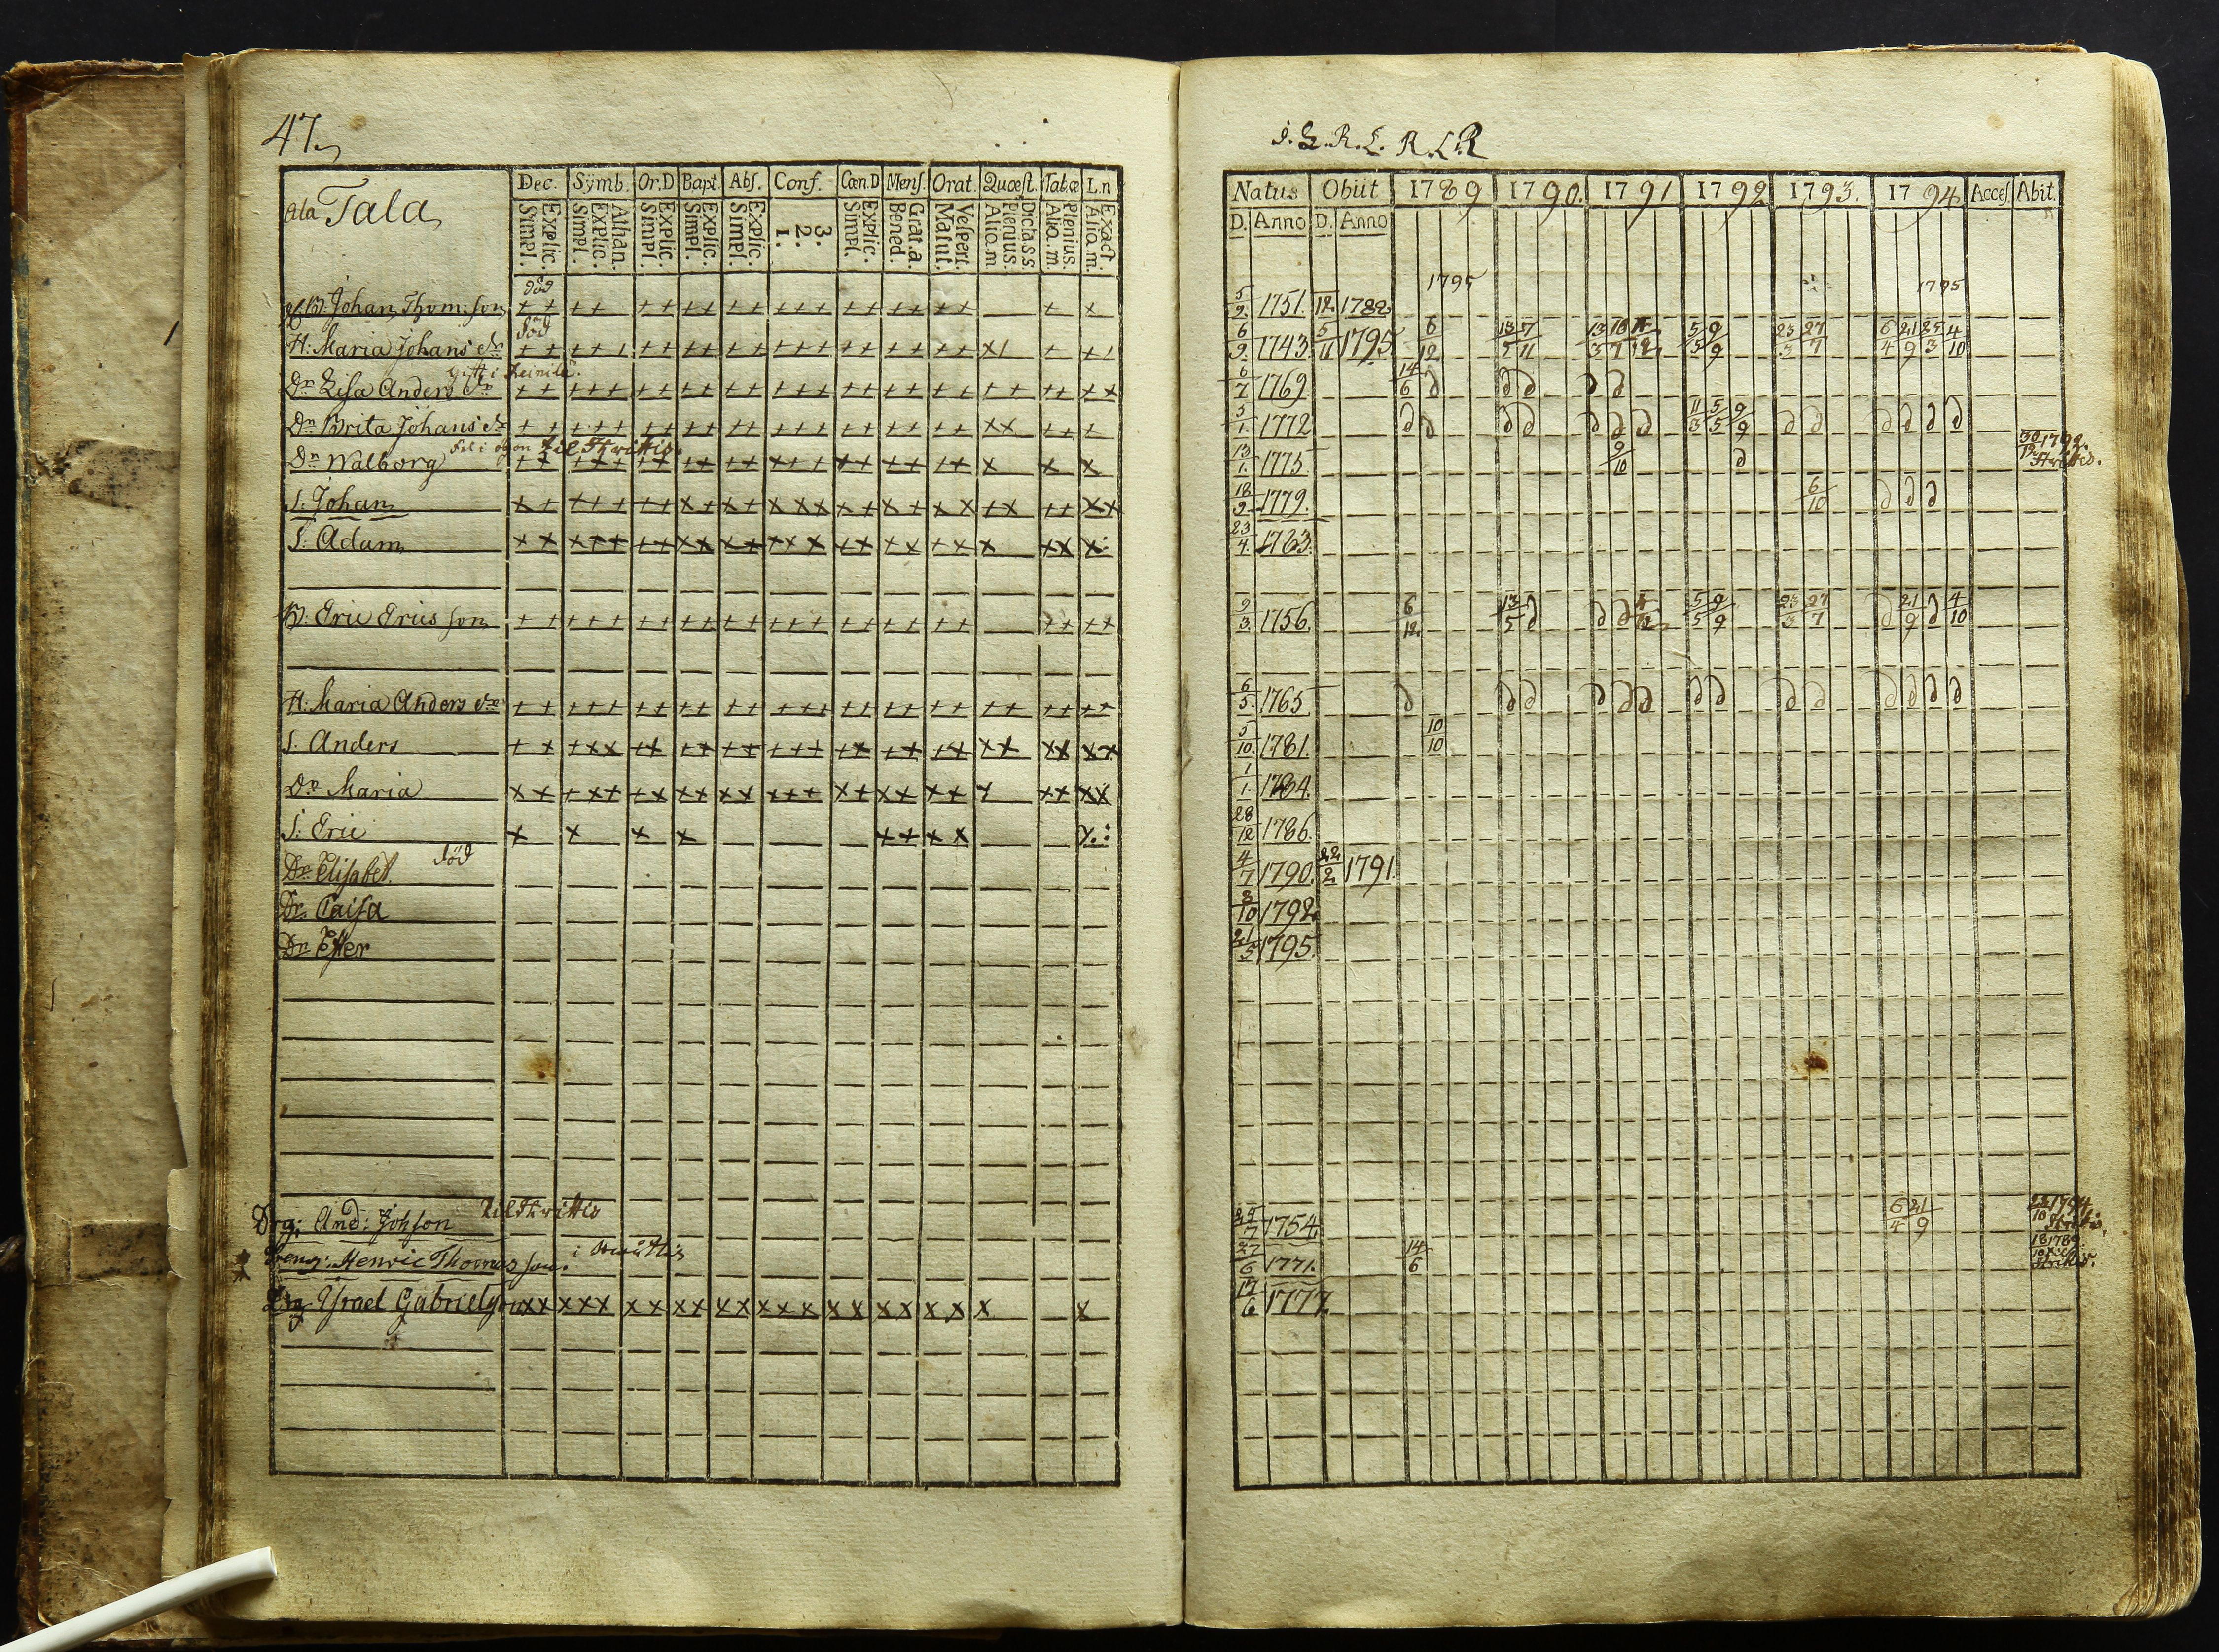 47.
Dec. Symb. Or.D Bapt. Abs. Conf. Cœn.D Mens. Orat. Quæst. Tab.œ L.n
Ala Tala
Simpl. Explic. Simpl. Explic. Athan. Simpl. Explic. Simpl. Explic. Simpl. Explic. 1. 2. 3. Simpl. Explic. Bened. Grat.a. Matut. Vespert. Aliq.m Plenius. Dicta.s.s. Aliq.m. Plenius. Aliq.m. Exact
död
B: Johan Thom:son
död
H: Maria Johans dr
gift i
Dr Lisa Anders dr
Dr Brita Johans dr
til Thrittis.
Dr Walborg
S: Johan
S: Adam
B: Eric Erics son
H: Maria Anders dr
S. Anders
Dr Maria
S: Eric
död
Dr Elisabet.
Dr. Caisa
Dr Ester
til Thrittis
Drg: And: Johson
Dreng: Henric Thomas son.
Drg Ysrael Gabrielson
J. L. R. L. R. L. R
Natus Obiit 1789 1790. 1791 1792 1793. 1794 Acces. Abit.
D. Anno D. Anno
1795 1795
5/9 1751. 12 1788
6/9 1743 5/11 1795 6/12 13/5 7/11 5/5 9/9 23/3 27/7 6/4 21/9 25/3 4/10
6/7 1769. 14/6
5/1 1772 11/3 5/5 9/9
13/1. 1775 9/10 30/12 1792.
18/9 1779. 6/10
23/4. 1763.
9/3 1756. 6/12. 13/5 5/5 9/9 23/3 27/7 21/9 4/10
6/5. 1765
5/10. 1781. 10/10
1/1. 1784.
28/12 1786.
4/7 1790. 22/2 1791.
3/10 1792.
21/5 1795.
25/7 1754. 6/4 21/9 1794.
27/6 1771. 14/6 1789.
17/6 1777